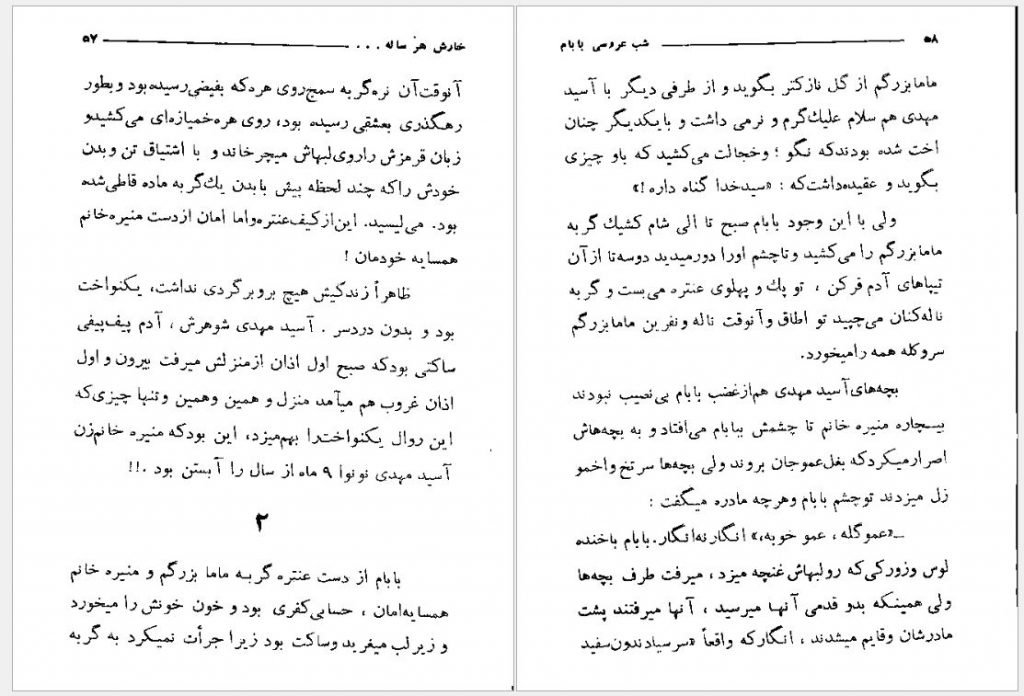 خارش هر ساله . . . ۵۷
آنوقت‌آن نره‌گربه سمج‌روی هره‌که بفیضی‌رسیده‌بود وبطور
رهگذری بعشقی رسیده بود، روی هره‌خمیازه‌ای می‌کشیدو
زبان قرمزش راروی‌لبهاش میچرخاند و با اشتیاق تن وبدن
خودش راکه چند لحظه پیش بابدن یك‌گربه ماده قاطی‌شده
بود. می‌لیسید. این‌ازکیف‌عنتره‌واما امان ازدست منیره‌خانم
همسایه خودمان !
ظاهراً زندگیش هیچ بروبرگردی نداشت، یکنواخت
بود و بدون دردسر . آسید مهدی شوهرش ، آدم پیف‌پیفی
ساکتی بودکه صبح اول اذان ازمنزلش میرفت بیرون و اول
اذان غروب هم میآمد منزل و همین وهمین وتنها چیزی‌که
این روال یکنواخت‌را بهم‌میزد، این بودکه منیره خانم‌زن
آسید مهدی نونوا ۹ ماه از سال را آبستن بود .!!
۲
بابام از دست عنتره گربه ماما بزرگم و منیره خانم
همسایه‌امان ، حسابی‌کفری بود و خون خونش را میخورد
و زیرلب میغرید وساکت بود زیرا جرأت نمیکرد به گربه
شب عروسی بابام ۵۸
مامابزرگم از گل نازکتر بگوید و از طرفی دیگر با آسید
مهدی هم سلام علیك‌گرم و نرمی داشت و بایکدیگر چنان
اخت شده بودندکه نگو ؛ وخجالت می‌کشید که باو چیزی
بگوید و عقیده‌داشت‌که : «سیدخدا گناه داره !»
ولی با این وجود بابام صبح تا الی شام کشیك گربه
مامابزرگم را می‌کشید وتاچشم اورا دورمیدید دوسه‌تا ازآن
تیپاهای آدم قرکن ، تو پك و پهلوی عنتره می‌بست و گربه
ناله‌کنان می‌چپید تو اطاق وآنوقت ناله ونفرین مامابزرگم
سروکله همه رامیخورد.
بچه‌های‌آسید مهدی هم‌ازغضب بابام بی‌نصیب نبودند
بیچاره منیره خانم تا چشمش ببابام می‌افتاد و به بچه‌هاش
اصرارمیکردکه بغل‌عموجان بروند ولی بچه‌ها سرتخ واخمو
زل میزدند توچشم بابام وهرچه مادره میگفت :
–«عموگله ، عمو خوبه،» انگارنه‌انگار.بابام باخنده
لوس وزورکی‌که رولبهاش‌غنچه میزد ، میرفت طرف بچه‌ها
ولی همینکه بدو قدمی آنها میرسید ، آنها میرفتند پشت
مادرشان وقایم میشدند ، انگارکه واقعاً «سرسیادندون‌سفید